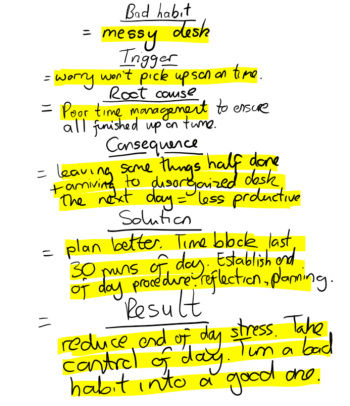 Bad habit
= messy desk
Trigger
= worry won't pick up son on time.
Root cause
= Poor time management to ensure
all finished up on time.
Consequence
= leaving some things half done
+ arriving to disorganized desk
the next day = less productive
Solution
= plan better. Time block last
30 mins of day. Establish end
of day procedure: reflection, planning.
= Result
reduce end of day stress. Take
control of day. Turn a bad
habit into a good one.